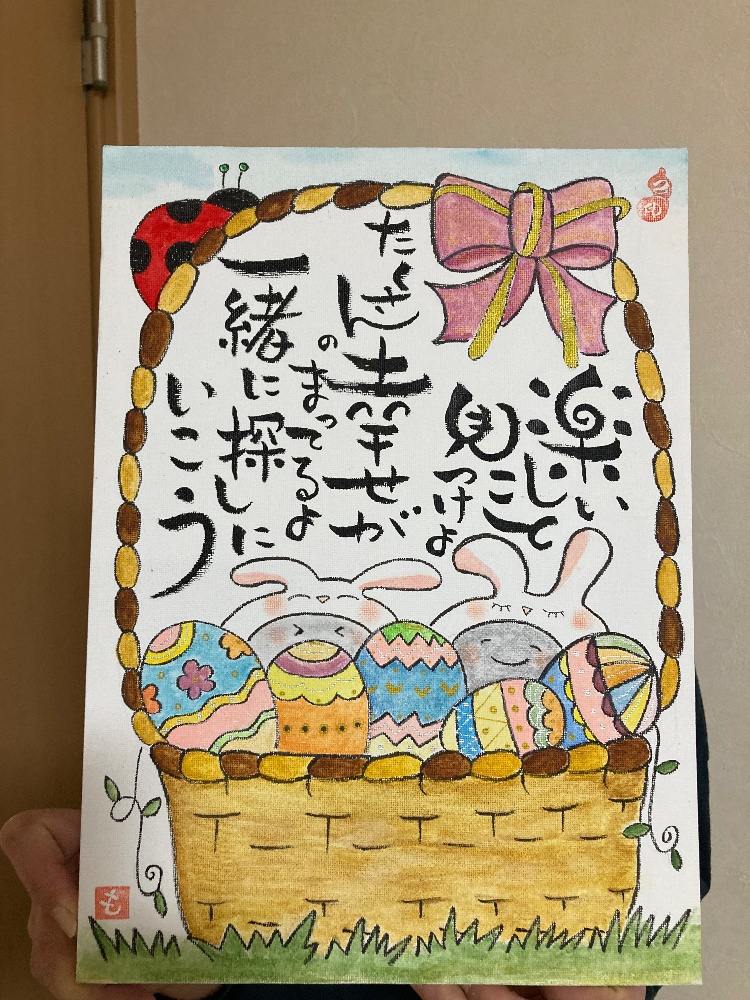 楽しいこと
見つけよ
たくさんの
幸せが
まってるよ
一緒に探しに
いこう